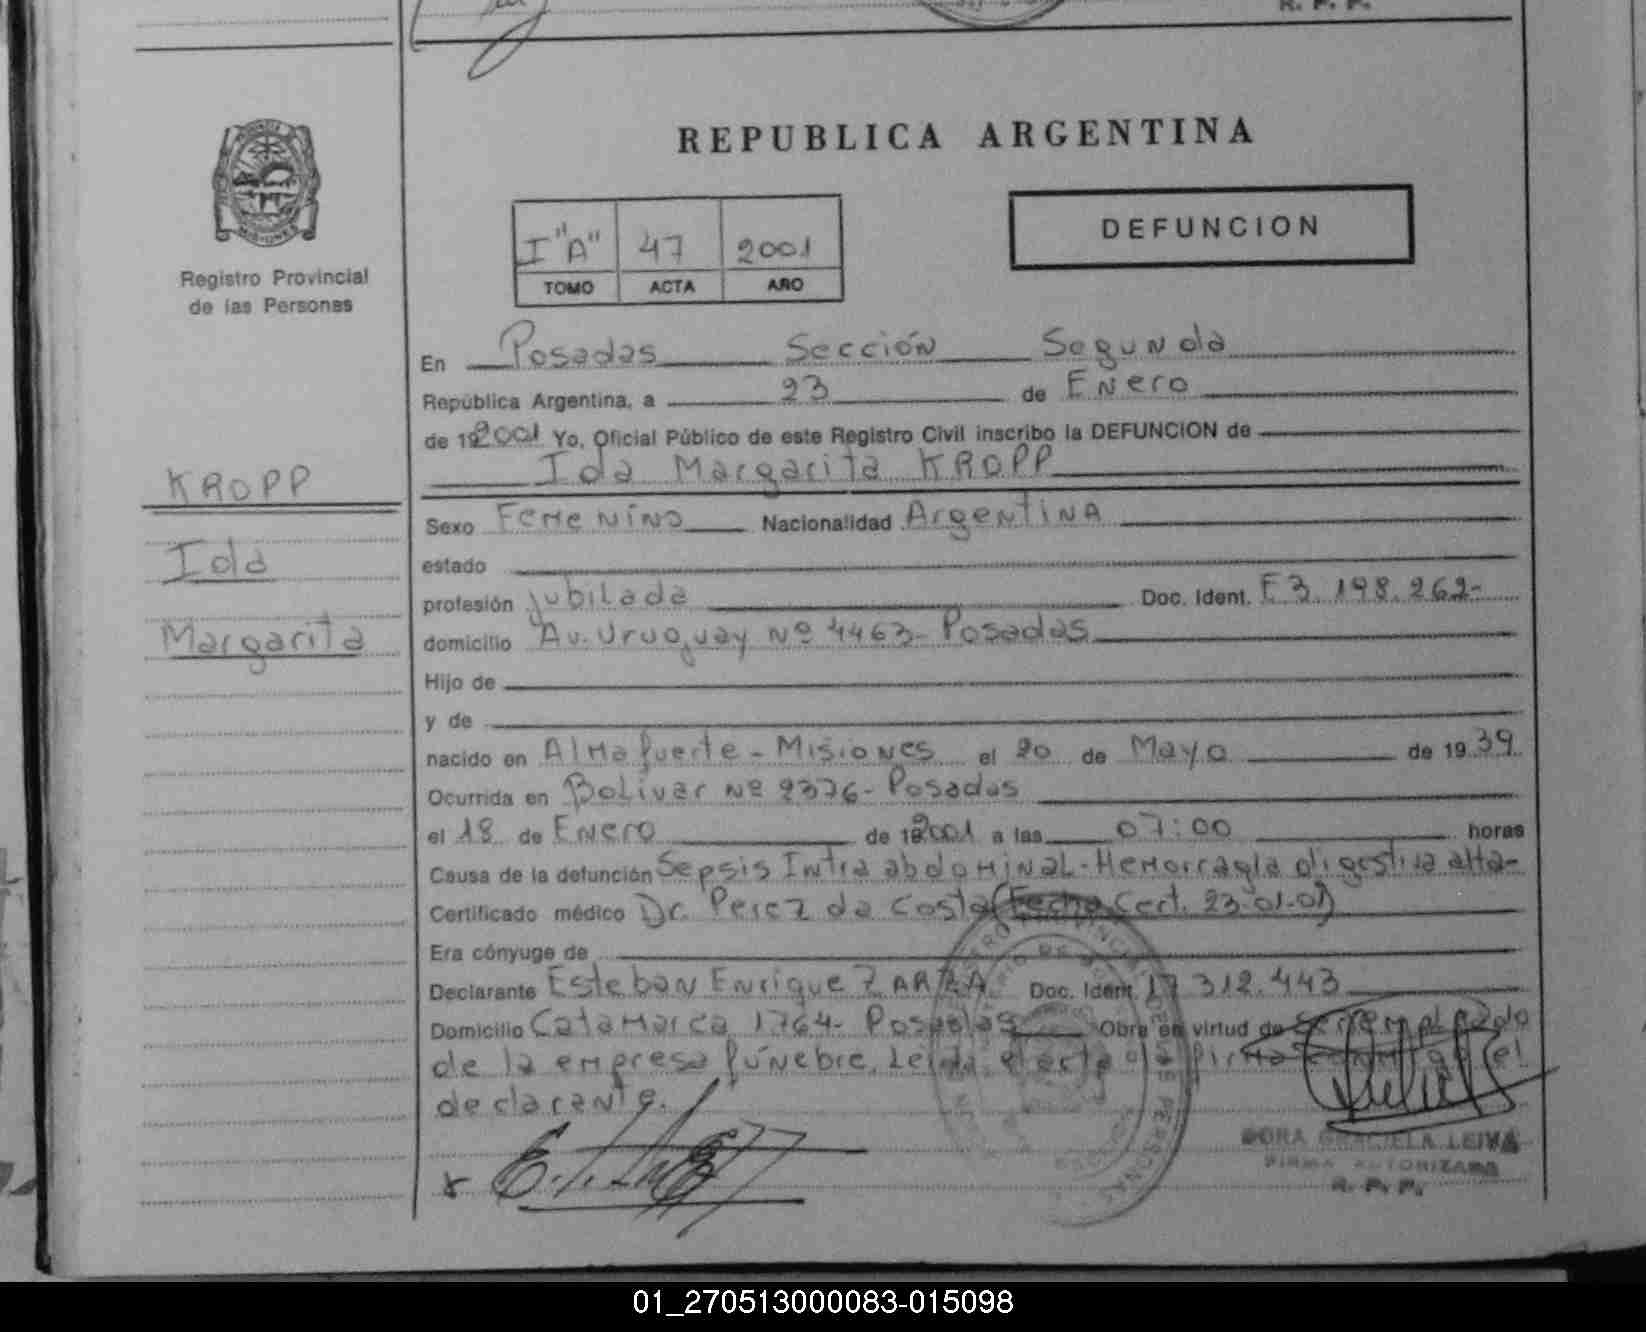 R. P. P.
MISIONES
Registro Provincial
de las Personas
KROPP
Ida
Margarita
REPUBLICA ARGENTINA
I "A" 47 2001
TOMO ACTA AÑO
DEFUNCION
En Posadas Sección Segunda
República Argentina, a 23 de Enero
de 19 2001 Yo, Oficial Público de este Registro Civil inscribo la DEFUNCION de
Ida Margarita KROPP
Sexo Femenino Nacionalidad Argentina
estado
profesión jubilada Doc. Ident. F 3.198.262-
domicilio Av. Uruguay Nº 4463- Posadas
Hijo de
y de
nacido en Almafuerte - Misiones el 20 de Mayo de 19 39
Ocurrida en Bolivar Nº 2376- Posadas
el 18 de Enero de 19 2001 a las 07:00 horas
Causa de la defunción Sepsis Intra abdominal - Hemorragia digestiva alta-
Certificado médico Dr. Perez da Costa (Fecha Cert. 23-01-01)
Era cónyuge de
Declarante Esteban Enrique ZARZA Doc. Ident. 17.312.443
Domicilio Catamarca 1764- Posadas Obra en virtud de ser empleado
de la empresa fúnebre. Leida el acta la firma el
declarante.
DORA GRACIELA LEIVA
FIRMA AUTORIZADA
R. P. P.
01_270513000083-015098